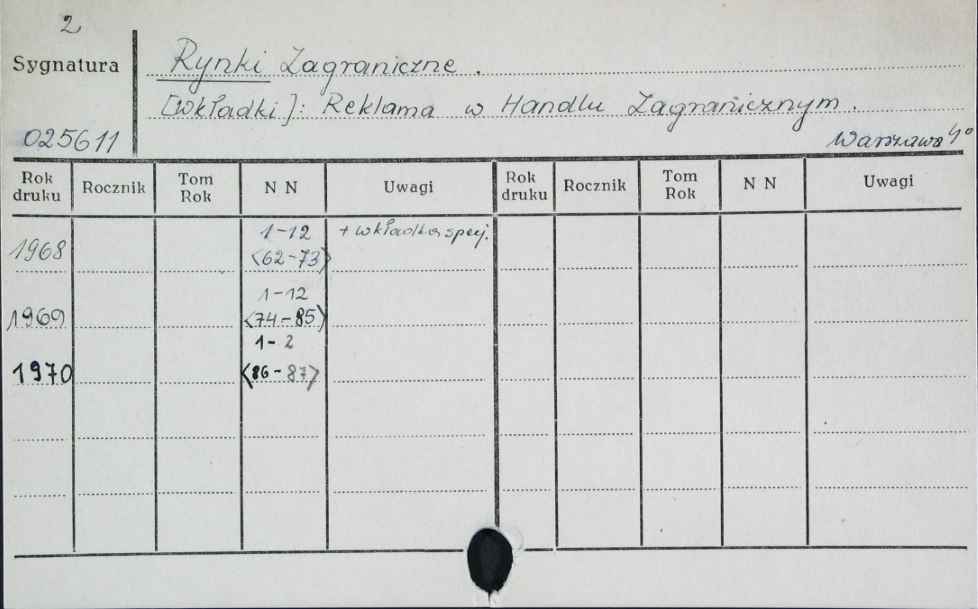 2
Sygnatura
Rynki Zagraniczne.
[Wkładki]: Reklama w Handlu Zagranicznym.
025611
Warszawa 4°
Rok druku Rocznik Tom Rok N N Uwagi Rok druku Rocznik Tom Rok N N Uwagi
1968 1-12 + wkładka specj.
<62-73>
1969 1-12
<74-85>
1970 1-2
<86-87>